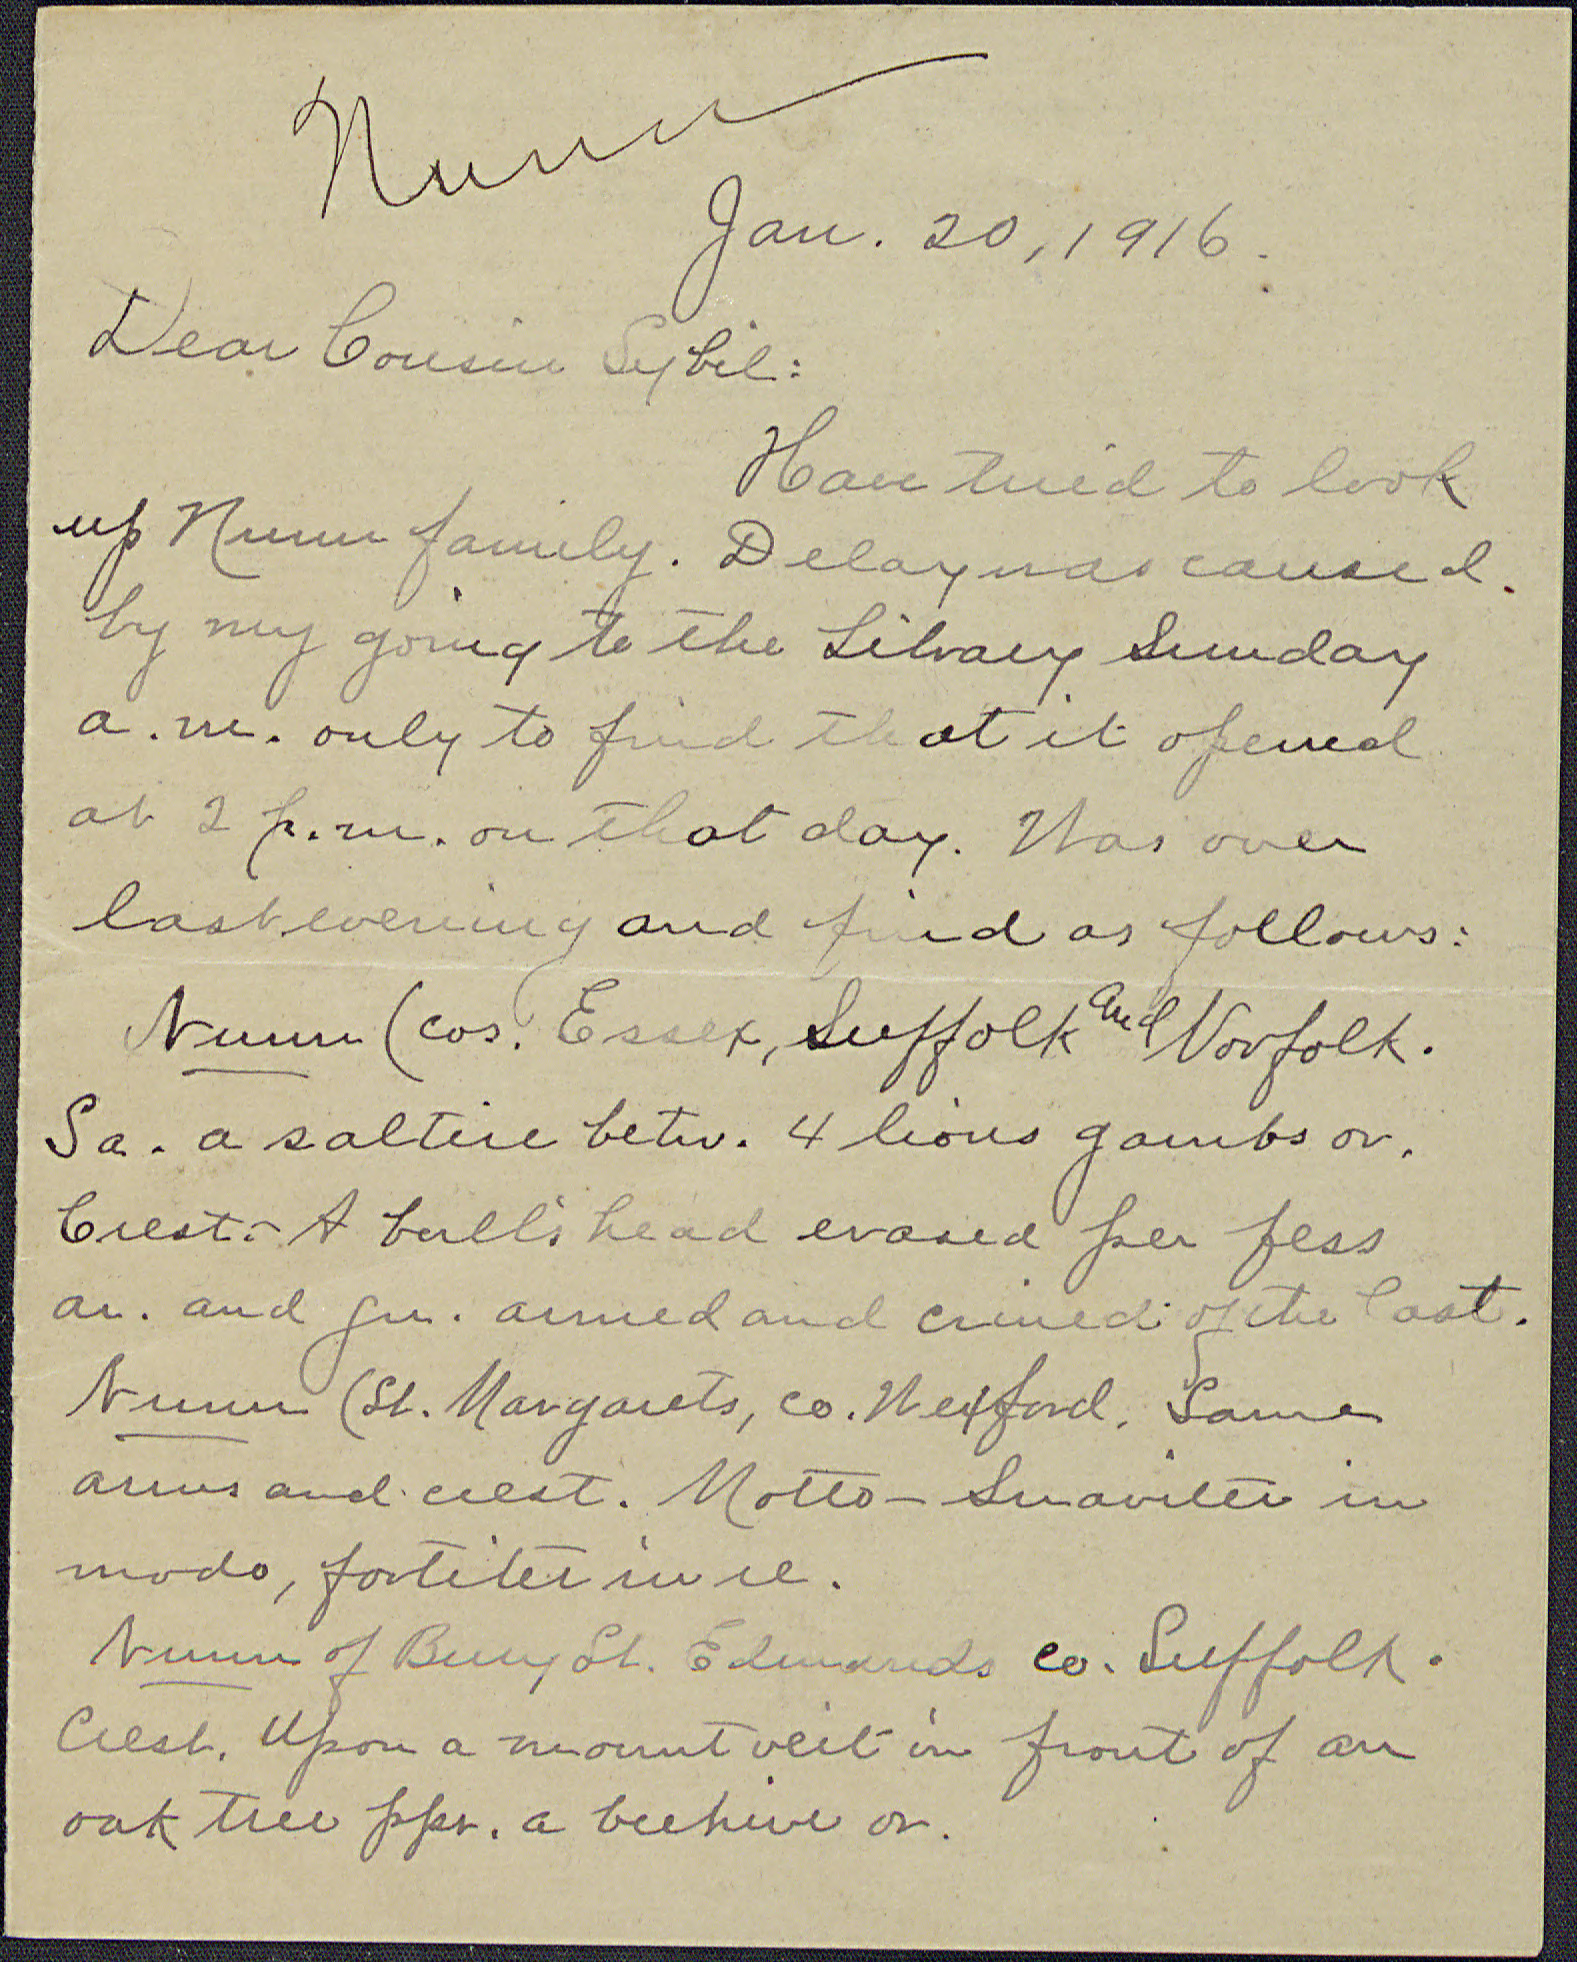 Nunn
Jan. 20, 1916.
Dear Cousin Sybil:
Have tried to look
up Nunn family. Delay was caused
by my going to the Library Sunday
a.m. only to find that it opened
at 2 p.m. on that day. Was over
last evening and find as follows:
Nunn (cos. Essex, Suffolk and Norfolk.
Sa. a saltire betw. 4 lions gambs or.
Crest:- A bull's head erased per fess
ar. and gu. armed and crined of the last.
Nunn (St. Margarets, co. Wexford. Same
arms and crest. Motto - Suaviter in
modo, fortiter in re.
Nunn of Bury St. Edmunds co. Suffolk.
Crest. Upon a mount vert in front of an
oak tree ppr. a beehive or.